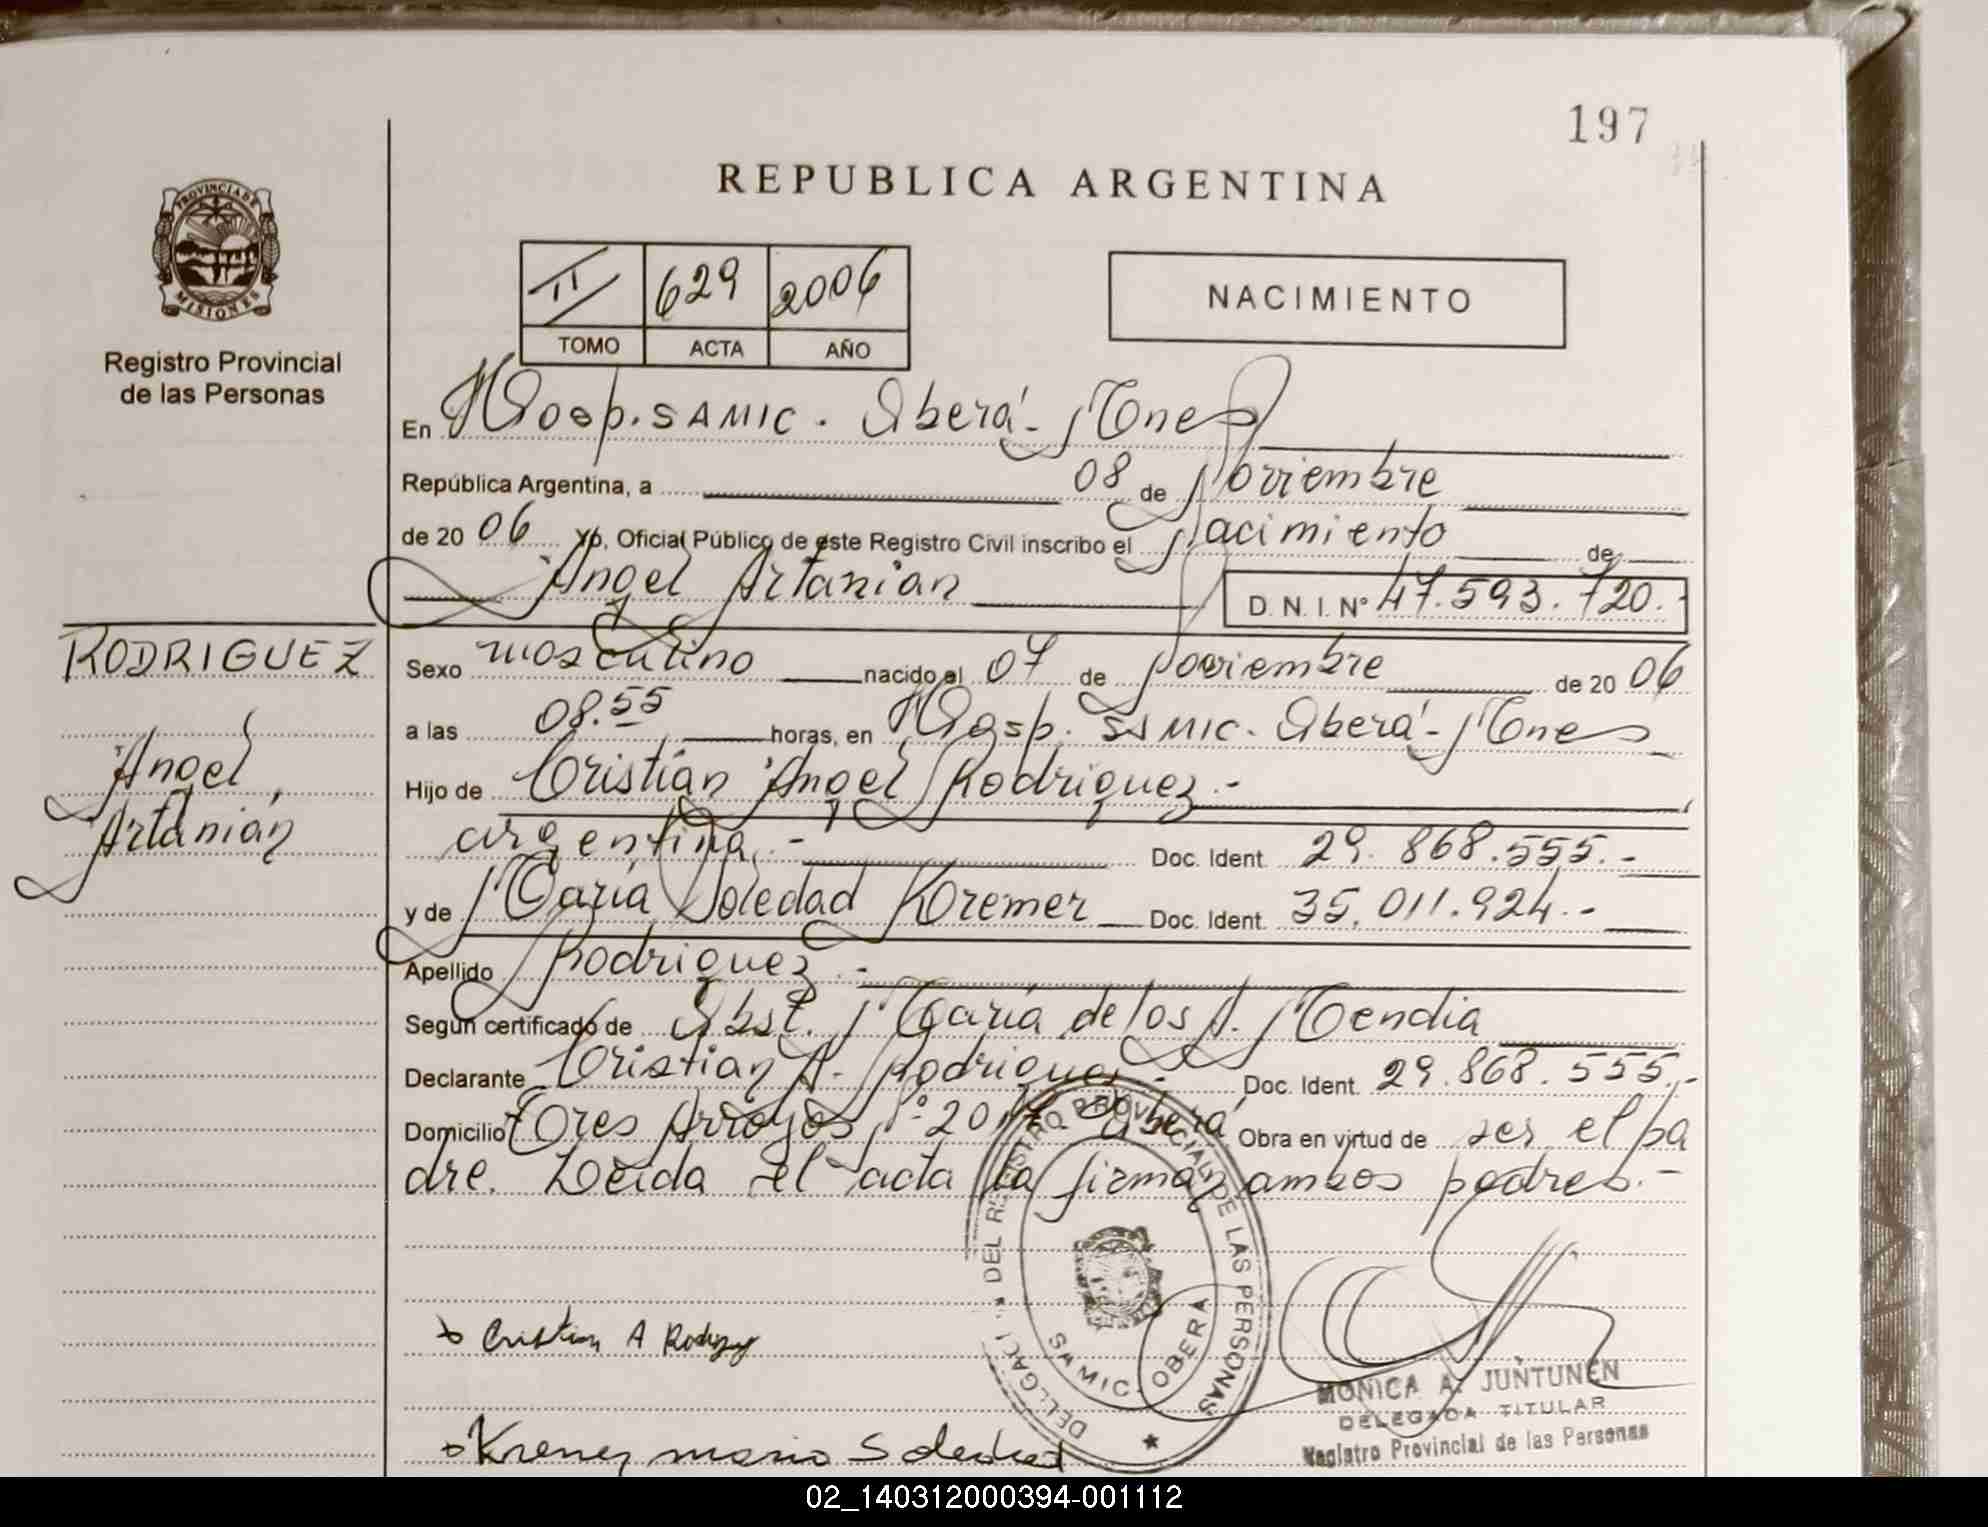 197
REPUBLICA ARGENTINA
PROVINCIA DE
MISIONES
Registro Provincial
de las Personas
II 629 2006
TOMO ACTA AÑO
NACIMIENTO
En Hosp. SAMIC. Oberá - Mnes
República Argentina, a 08 de Noviembre
de 20 06 Yo, Oficial Público de este Registro Civil inscribo el Nacimiento de
Angel Artanian D. N. I. Nº 47.593.720.-
RODRIGUEZ
Angel
Artanián
Sexo masculino nacido el 07 de Noviembre de 20 06
a las 08.55 horas, en Hosp. SAMIC. Oberá - Mnes
Hijo de Cristian Angel Rodriguez.-
argentina.- Doc. Ident. 29.868.555.-
y de María Soledad Kremer Doc. Ident. 35.011.924.-
Apellido Rodriguez.-
Según certificado de Obst. María de los A. Mendia
Declarante Cristian A. Rodriguez.- Doc. Ident. 29.868.555.-
Domicilio Tres Arroyos Nº Oberá Obra en virtud de ser el pa
dre. Leida el acta la firman ambos padres.-
DEL REGISTRO PROVINCIAL DE LAS PERSONAS
SAMIC. OBERA
Cristian A Rodriguez
Kremer maria Soledad
MONICA A. JUNTUNEN
DELEGADA TITULAR
Registro Provincial de las Personas
02_140312000394-001112